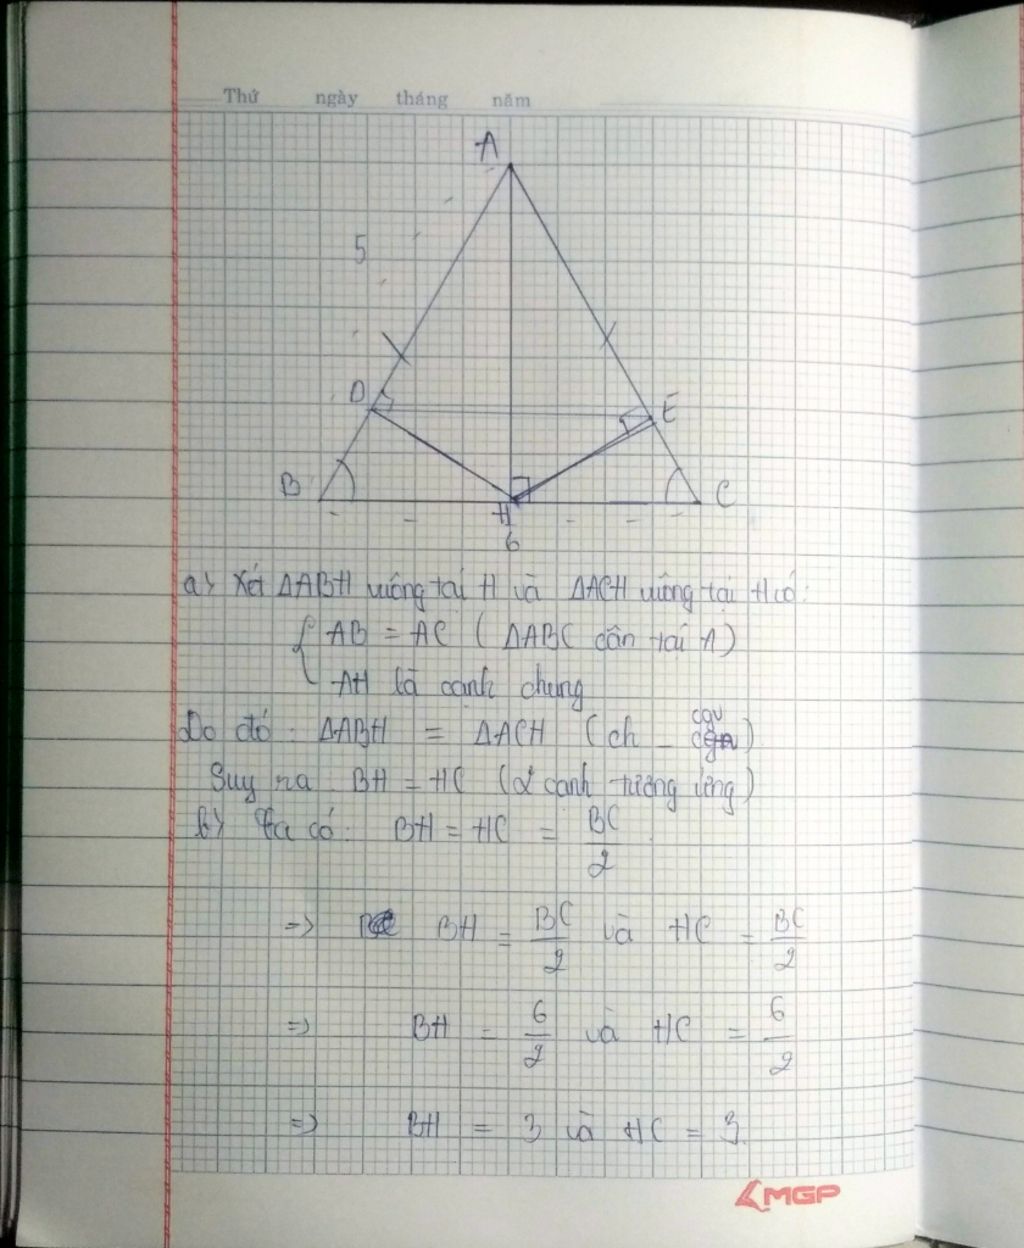 Thứ ngày tháng năm
A
5
D
E
B
C
H
6
a> Xét ΔABH vuông tại H và ΔACH vuông tại H có:
{ AB = AC (ΔABC cân tại A)
AH là cạnh chung
Do đó: ΔABH = ΔACH (ch - cgv)
Suy ra: BH = HC (2 cạnh tương ứng)
b> Ta có: BH = HC = BC/2
=> BH = BC/2 và HC = BC/2
=> BH = 6/2 và HC = 6/2
=> BH = 3 và HC = 3.
MGP